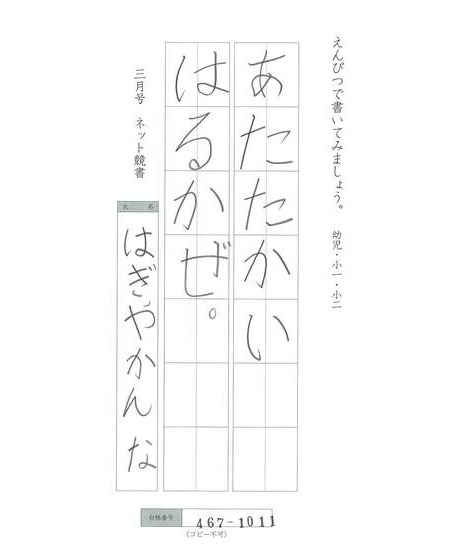 えんぴつで書いてみましょう。 幼児・小一・小二
あたたかい
はるかぜ。
三月号 ネット競書
氏名
はぎやかんな
台帳番号 467-1011
(コピー不可)